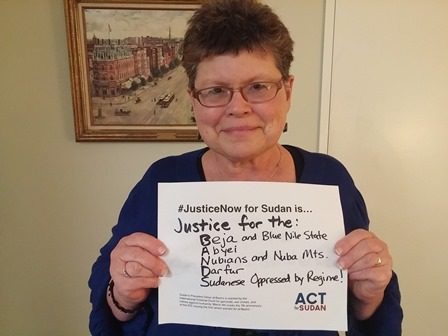 #JusticeNow for Sudan is...
Justice for the:
Beja and Blue Nile State
Abyei
Nubians and Nuba Mts.
Darfur
Sudanese Oppressed by Regime!
ACT
for SUDAN